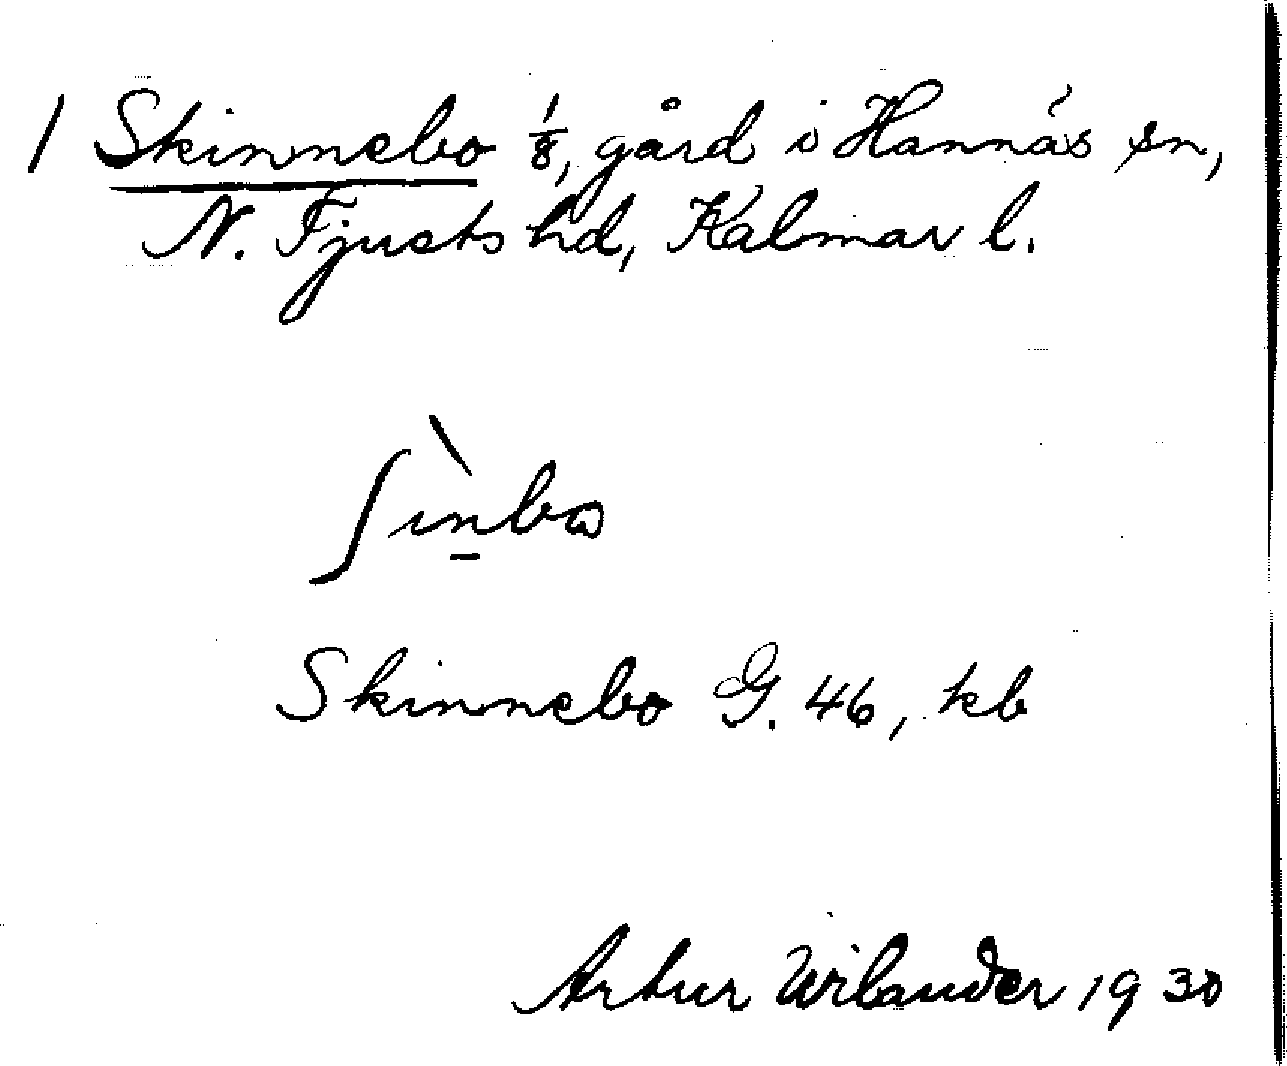 1 Skinnebo 1/8, gård i Hannäs sn,
N. Tjusts hd, Kalmar l.
ʃìn̠bω
Skinnebo G. 46, kb
Artur Wilander 1930